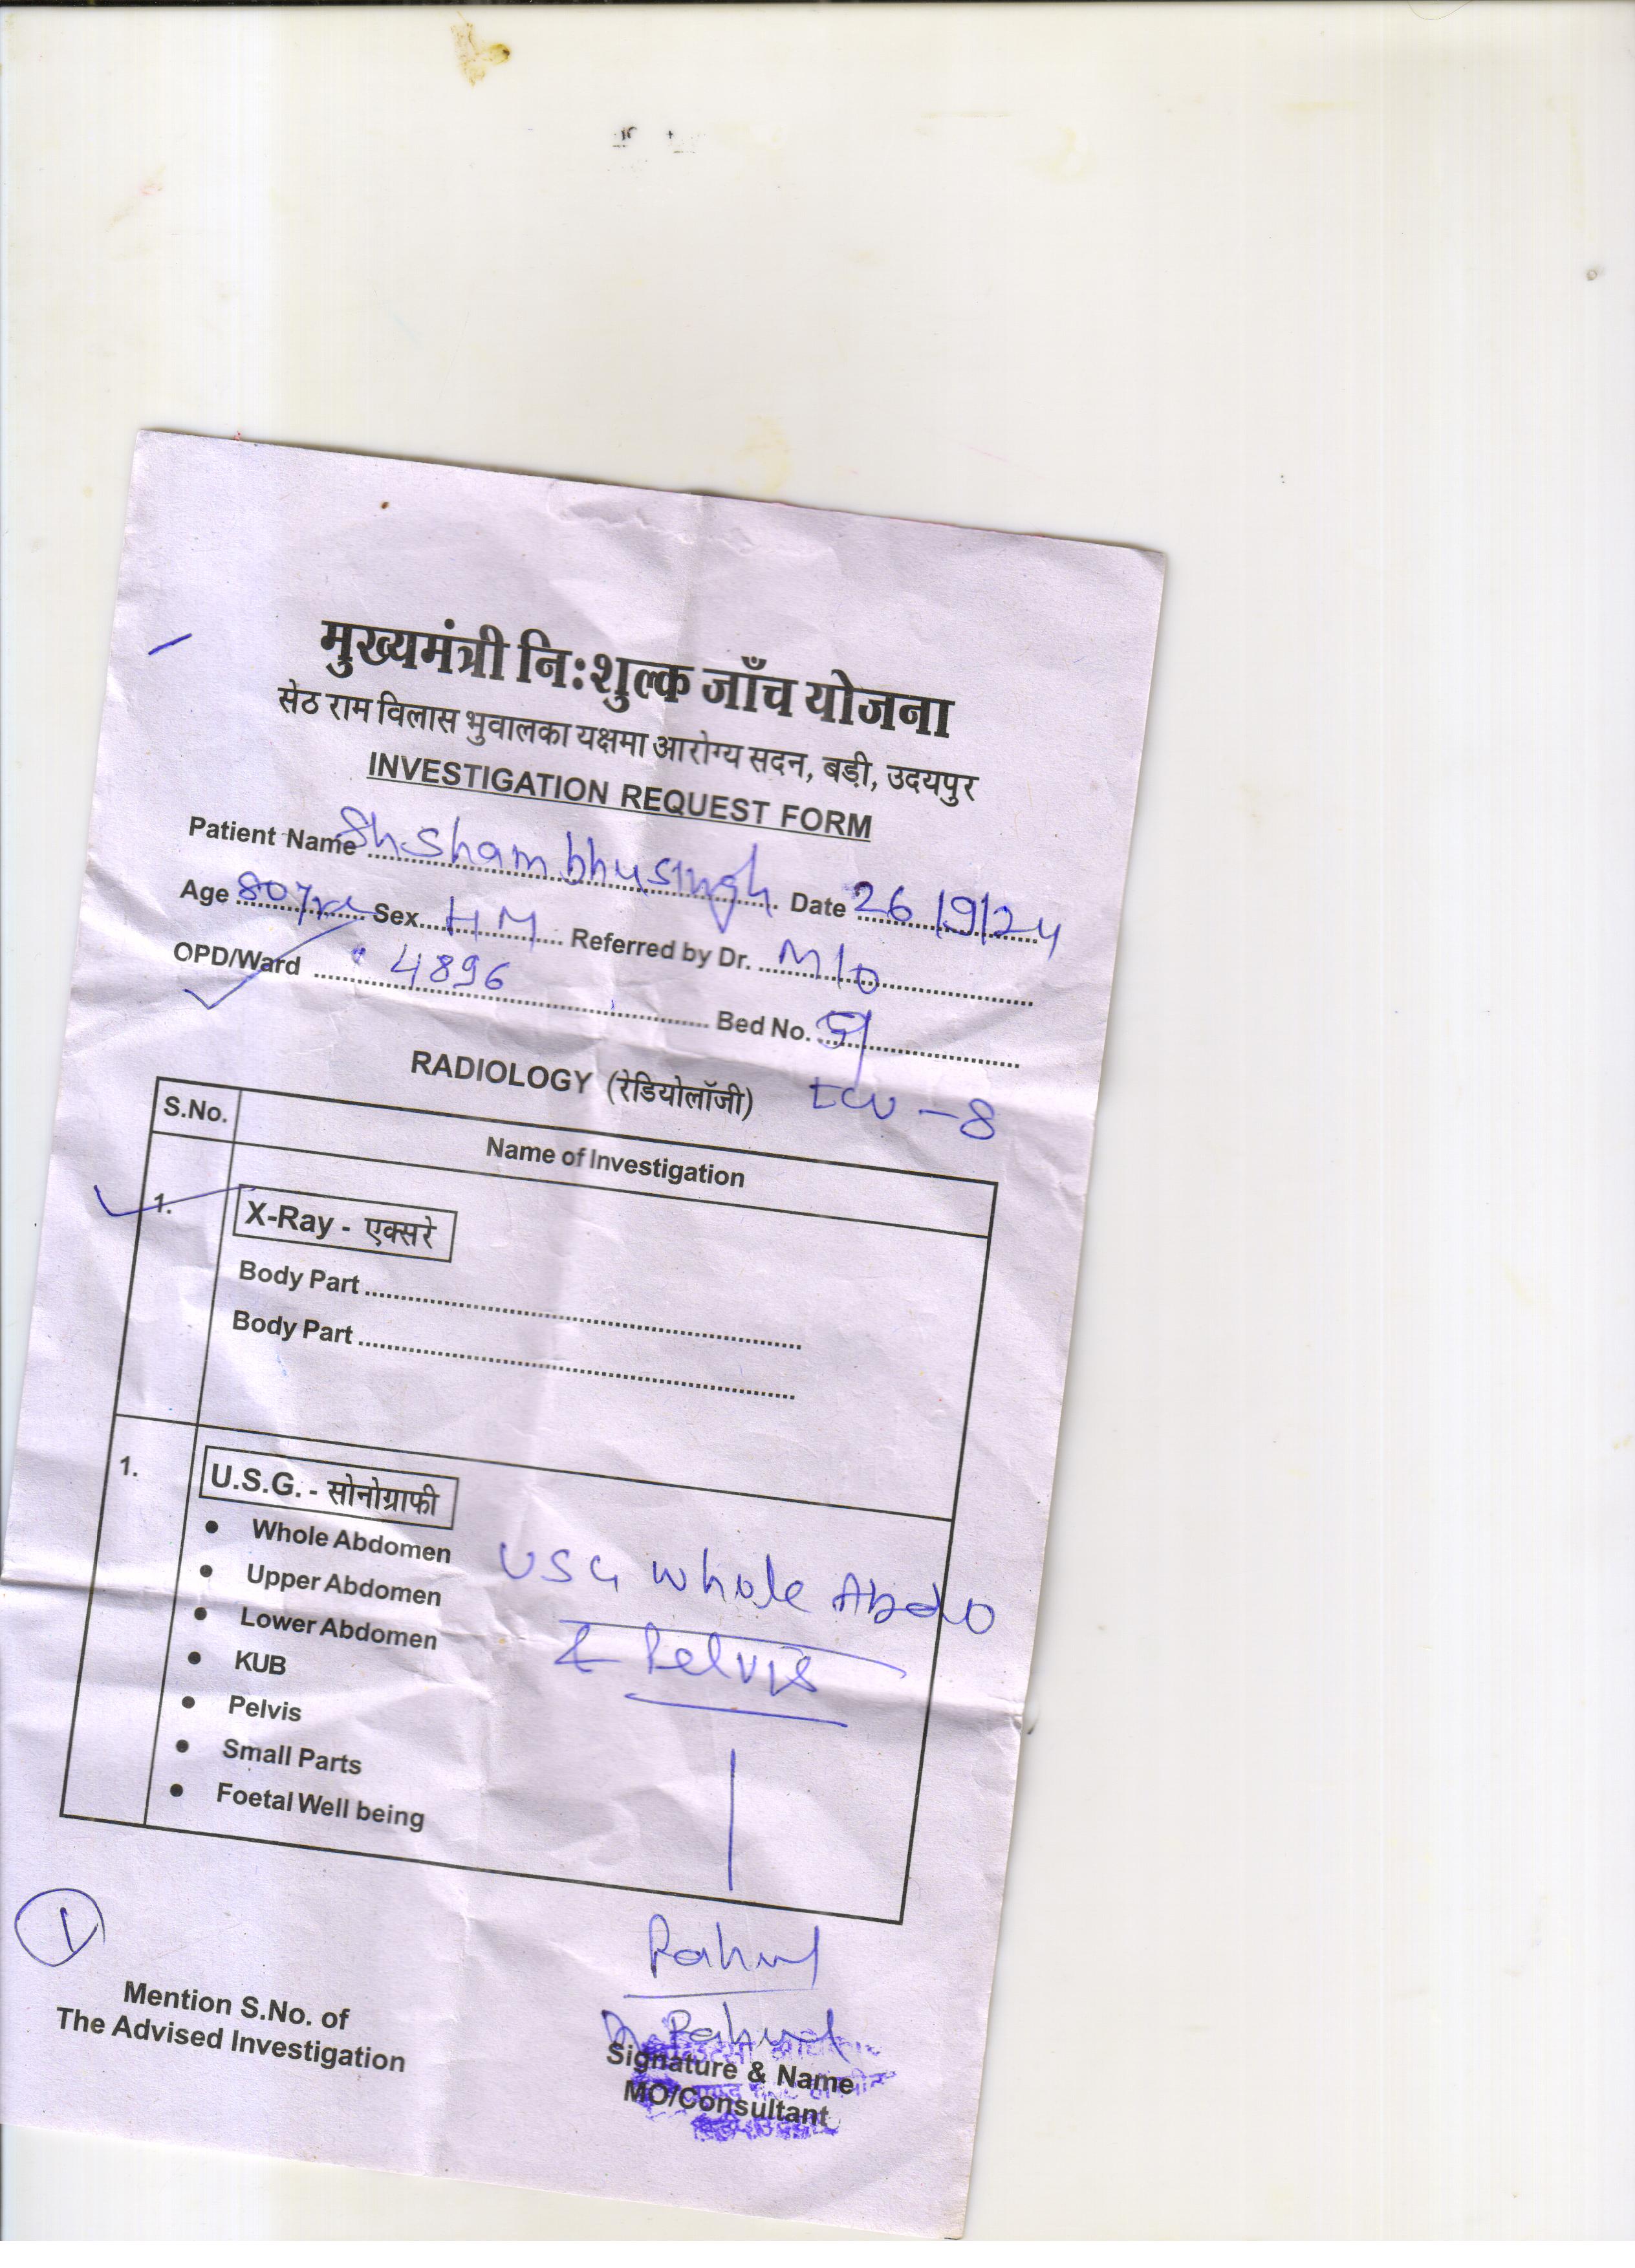 मुख्यमंत्री नि:शुल्क जाँच योजना
सेठ राम विलास भुवालका यक्षमा आरोग्य सदन, बड़ी, उदयपुर
INVESTIGATION REQUEST FORM
Patient Name Sh Shambhu Singh Date 26/9/24
Age 80yrs Sex HM Referred by Dr. M10
OPD/Ward 4896 Bed No.
RADIOLOGY (रेडियोलॉजी) ICU - 8
S.No. Name of Investigation
1. X-Ray - एक्सरे
Body Part
Body Part
1. U.S.G. - सोनोग्राफी
Whole Abdomen USG Whole Abdo
Upper Abdomen & Pelvis
Lower Abdomen
KUB
Pelvis
Small Parts
Foetal Well being
1 Rahul
Mention S.No. of Dr. Rahul
The Advised Investigation Signature & Name
MO/Consultant